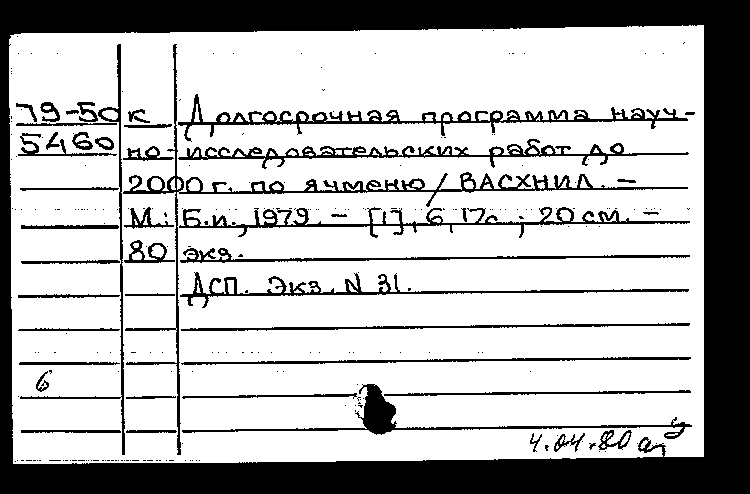 79-50 к Долгосрочная программа науч-
5460 но-исследовательских работ до
2000 г. по ячменю / ВАСХНИЛ. –
М.: Б.и., 1979. – [1], 6, 17с.; 20 см. –
80 экз.
ДСП. Экз. N 31.
6
4.04.80